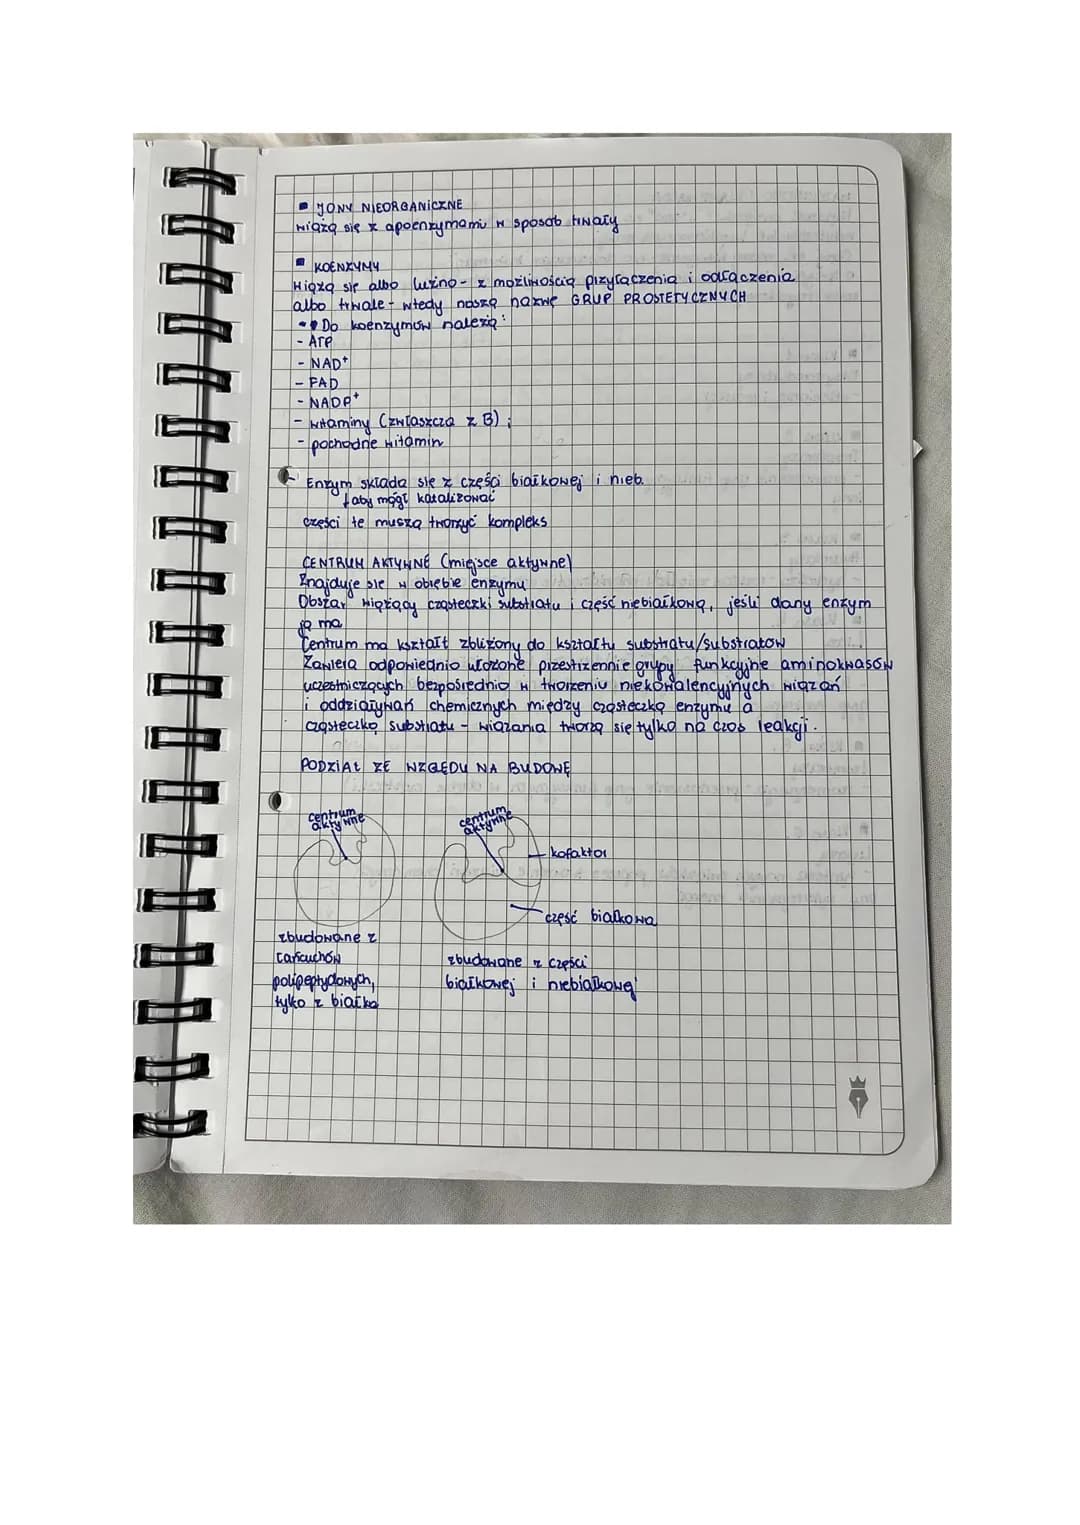 ▪ JONY NIEORGANICZNE
wiążą się z apoenzymami w sposób trwały
▪ KOENZYMY
Wiążą się albo luźno - z możliwością przyłączenia i odłączenia
albo trwale - wtedy noszą nazwę GRUP PROSTETYCZNYCH
Do koenzymów należą:
- ATP
- NAD⁺
- FAD
- NADP⁺
- witaminy (zwłaszcza z B) ;
- pochodne witamin
Enzym składa się z części białkowej i nieb.
↓ aby mógł katalizować
części te muszą tworzyć kompleks
CENTRUM AKTYWNE (miejsce aktywne)
Znajduje się w obiębie enzymu
Obszar wiążący cząsteczki substratu i część niebiałkową, jeśli dany enzym
ją ma
Centrum ma kształt zbliżony do kształtu substratu/substratów
Zawiera odpowiednio ułożone przestrzennie grupy funkcyjne aminokwasów
uczestniczących bezpośrednio w tworzeniu niekowalencyjnych wiązań
i oddziaływań chemicznych między cząsteczką enzymu a
cząsteczką substratu - wiązania tworzą się tylko na czas reakcji.
PODZIAŁ ZE WZGLĘDU NA BUDOWĘ
centrum
aktywne
centrum
aktywne
kofaktor
część białkowa
zbudowane z
łańcuchów
polipeptydowych,
tylko z białka
zbudowane z części
białkowej i niebiałkowej